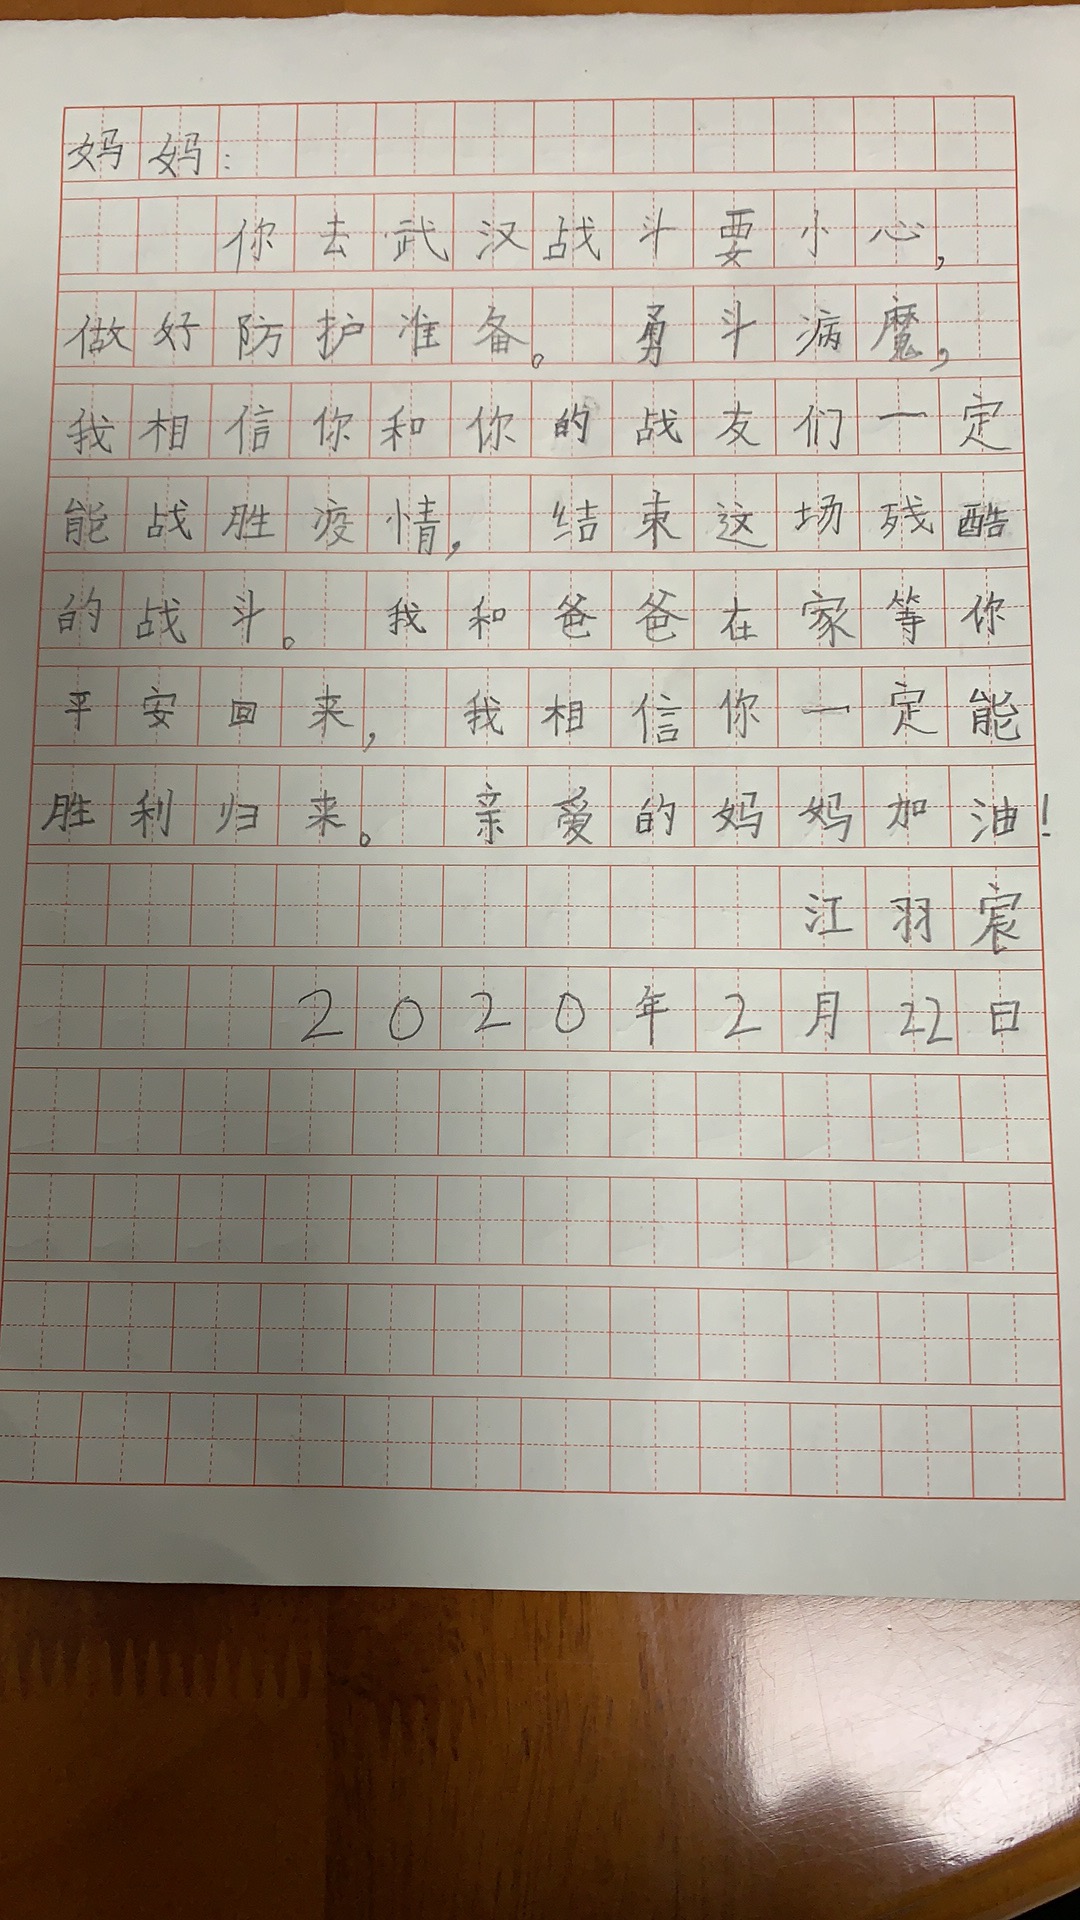 妈妈：
你去武汉战斗要小心，
做好防护准备。勇斗病魔，
我相信你和你的战友们一定
能战胜疫情，结束这场残酷
的战斗。我和爸爸在家等你
平安回来，我相信你一定能
胜利归来。亲爱的妈妈加油！
江羽宸
2020年2月22日